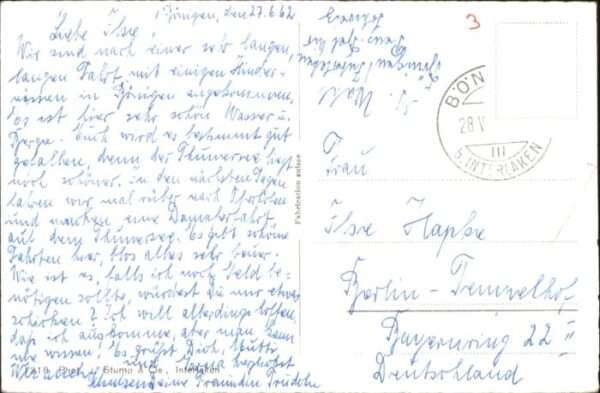 Bönigen, den 27.6.62
Liebe Ilse,
Wir sind nach einer sehr langen,
langen Fahrt mit einigen Hinder-
nissen in Bönigen angekommen.
Es ist hier sehr schön Wasser u.
Berge. Euch wird es bestimmt gut
gefallen, denn der Thunersee liegt
noch schöner. In den nächsten Tagen
fahren wir mal rüber nach
und machen eine Dampferfahrt
auf dem Thunersee. Es gibt schöne
Fahrten hier, blos alles sehr teuer.
Wie ist es, falls ich noch Geld be-
nötigen sollte, würdest Du mir etwas
schicken? Ich will allerdings hoffen,
daß ich auskomme, aber man kann
nie wissen! Es grüßt Dich, Mutti
und herzlichst
Deine Freundin Trudchen
Stump & Cie., Interlaken
Fabrication suisse
Bönigen / Interlaken
Schweiz
3
BÖN
28.V
III
b. INTERLAKEN
Frau
Ilse Hapke
Berlin-Tempelhof
Bayernring 22 II
Deutschland